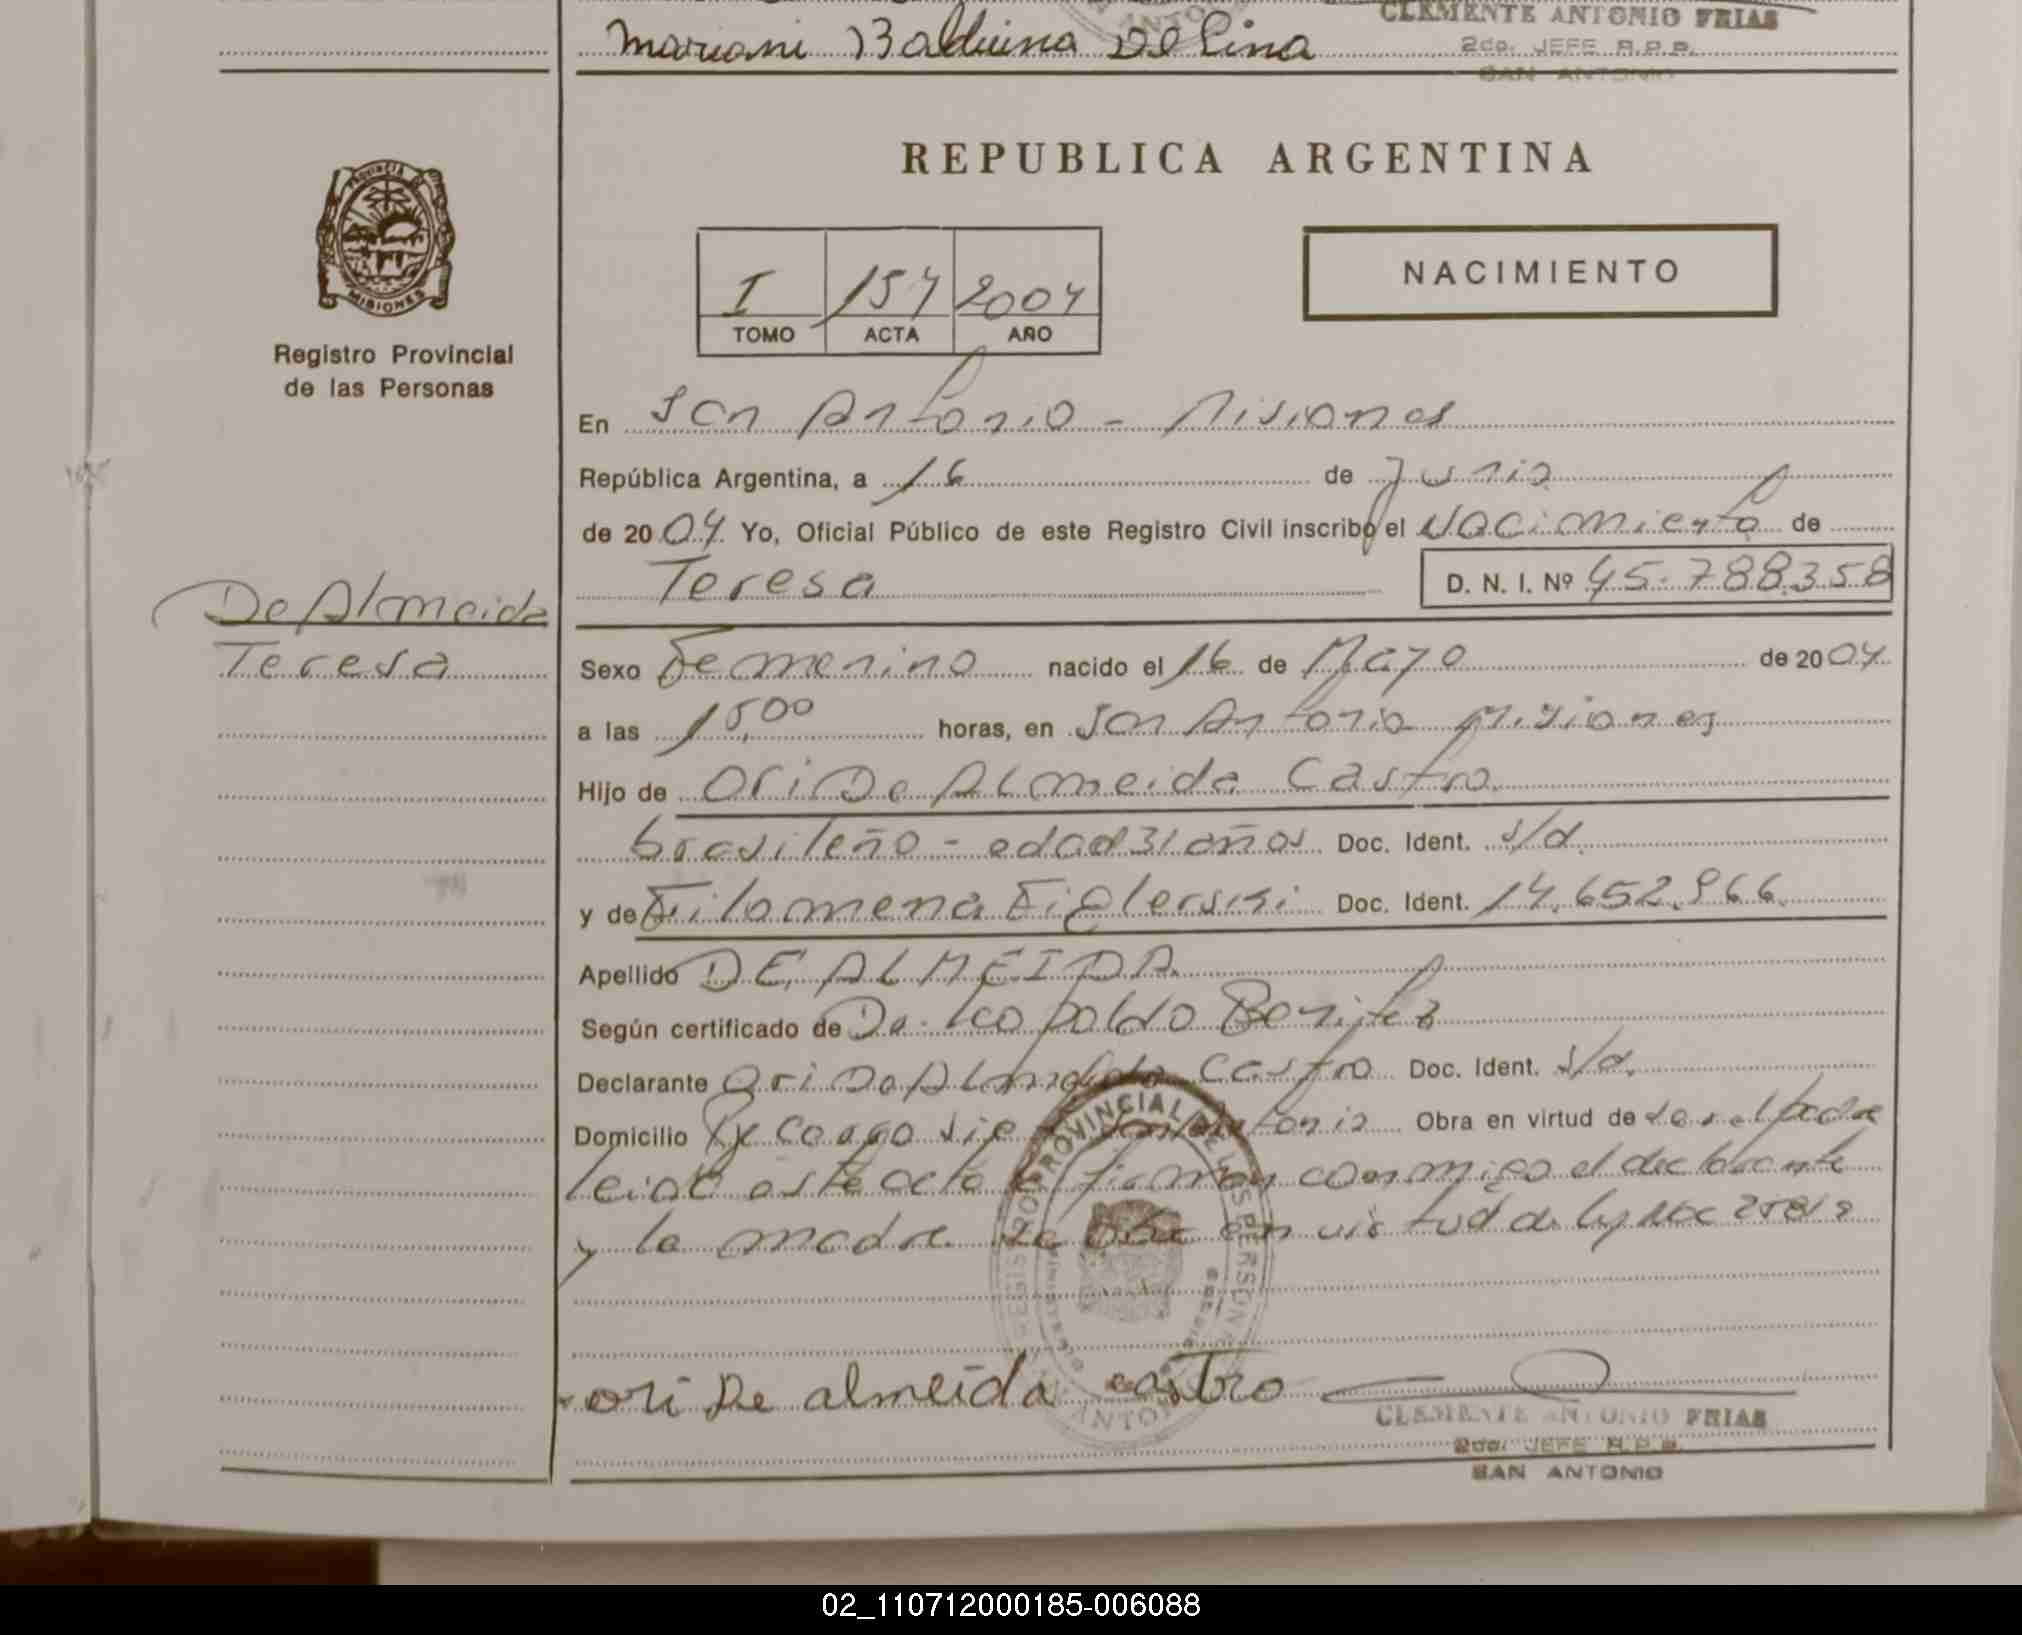 CLEMENTE ANTONIO FRIAS
Mariani Balduina Delina
2do. JEFE R.P.P.
SAN ANTONIO
PROVINCIA DE
MISIONES
Registro Provincial
de las Personas
REPUBLICA ARGENTINA
I 154 2004
TOMO ACTA AÑO
NACIMIENTO
En San Antonio - Misiones
República Argentina, a 16 de Junio
de 2004 Yo, Oficial Público de este Registro Civil inscribo el Nacimiento de
Teresa D. N. I. Nº 45.788.358
De Almeida
Teresa
Sexo Femenino nacido el 16 de Mayo de 2004
a las 15,00 horas, en San Antonio Misiones
Hijo de Ori De Almeida Castro
brasileño - edad 31 años Doc. Ident. s/d.
y de Filomena Figlerski Doc. Ident. 14.652.966
Apellido DE ALMEIDA
Según certificado de Dr. Leopoldo Benitez
Declarante Ori De Almeida Castro Doc. Ident. s/d.
Domicilio San Antonio Obra en virtud de ser el padre
leida este acta firman conmigo el declarante
y la madre en virtud de ley
ori De almeida castro
REGISTRO PROVINCIAL DE LAS PERSONAS
CLEMENTE ANTONIO FRIAS
2do. JEFE R.P.P.
SAN ANTONIO
02_110712000185-006088